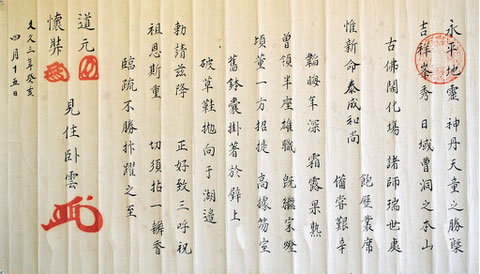 永平地靈 神丹天童之勝槩
吉祥峯秀 日域曹洞之本山
古佛開化場 諸師瑞世處
惟新命泰成和尚 飽歷叢席
備甞艱辛
韜晦年深 霜露果熟
曾領半座雄職 既繼家燈
頃董一方提 高據丈室
舊鉢囊掛著於壁上
破草鞋抛向于湖邊
勅請茲降 正好致三呼祝
祖恩斯重 切須拈一瓣香
臨疏不勝抃躍之至
道元
懷弉 見住卧雲
文久三年癸亥
四月十五日